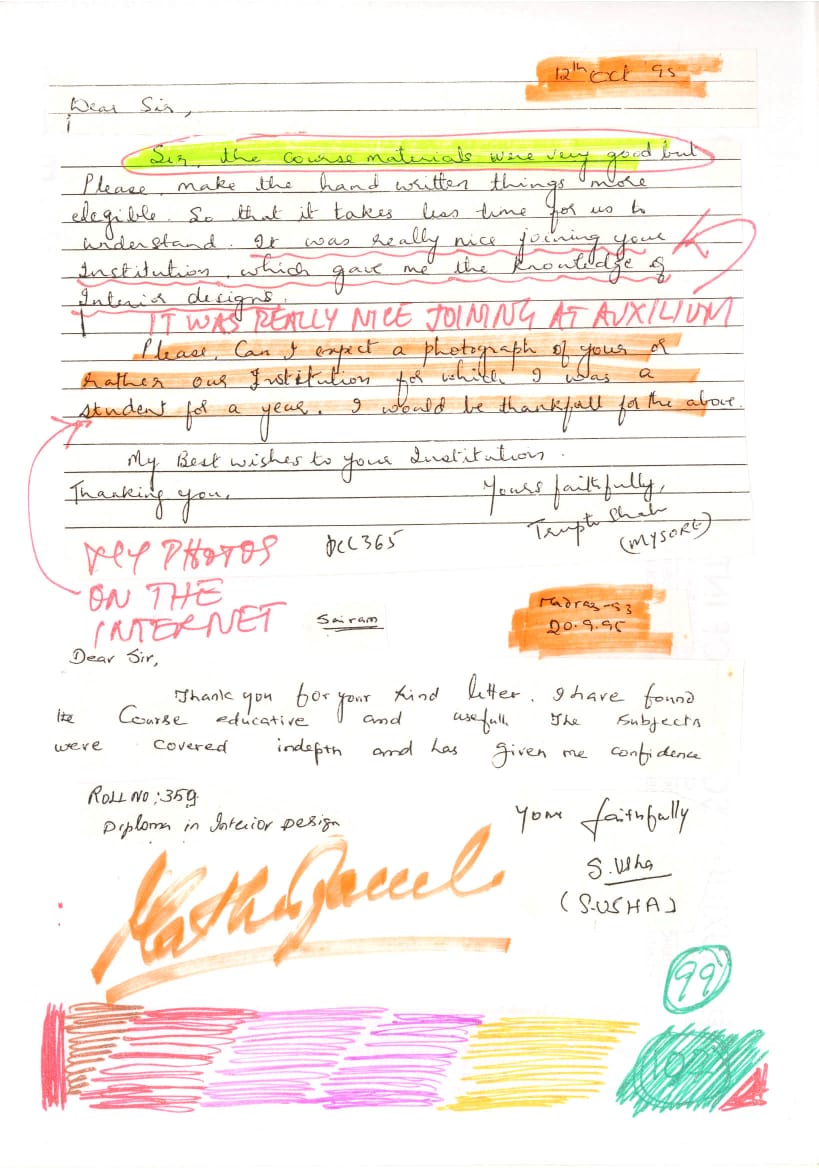 12th Oct '95
Dear Sir,
Sir, the course materials were very good but
Please, make the hand written things more
elegible. So that it takes less time for us to
understand. It was really nice joining your
Institution, which gave me the knowledge of
Interior designs.
IT WAS REALLY NICE JOINING AT AUXILIUM
Please, Can I expect a photograph of your or
rather our Institution for which I was a
student for a year. I would be thankfull for the above.
My Best wishes to your Institution.
Thanking you,
Yours faithfully,
Shah
(MYSORE)
DCC365
MY PHOTOS
ON THE
INTERNET
Sairam
Madras-93
20.9.95
Dear Sir,
Thank you for your kind letter. I have found
the Course educative and usefull. The Subjects
were covered indepth and has given me confidence
ROLL NO: 359
Diploma in Interior Design
Yours faithfully
S. Usha
(S.USHA)
99
100